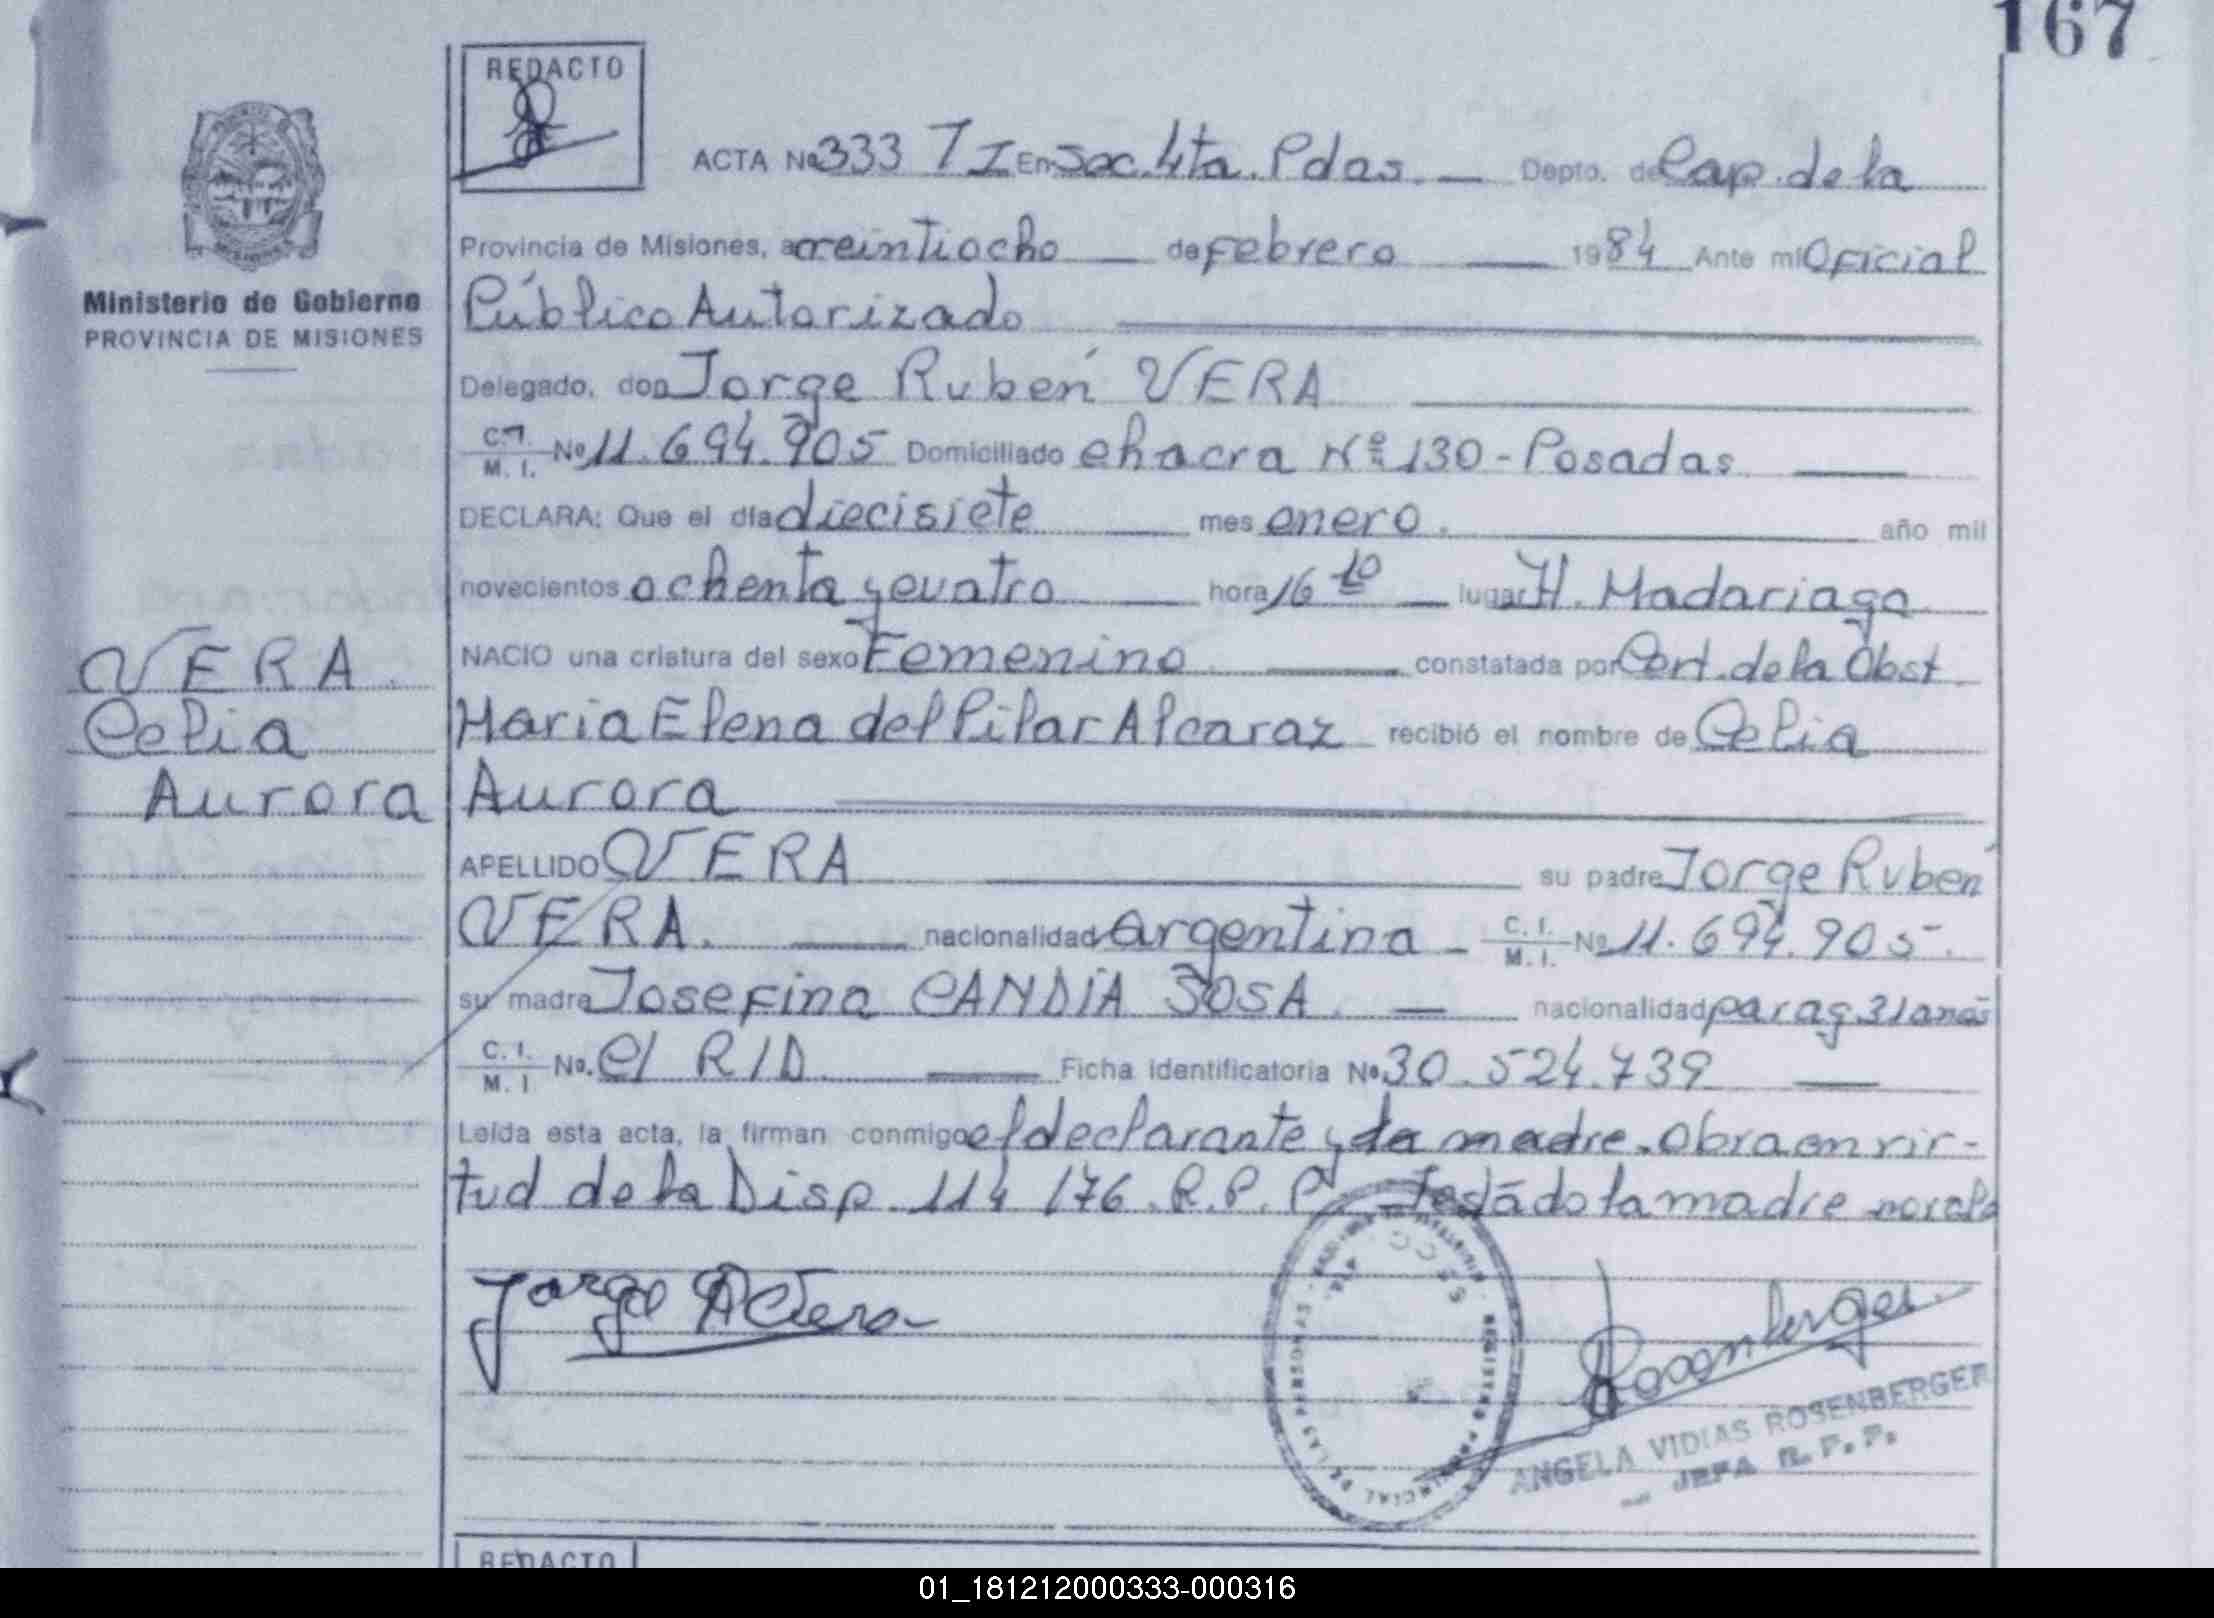 167
REDACTO
ACTA Nº 333 T I En Sec. 4ta. Pdas. Depto. de Cap. de la
Provincia de Misiones, a veintiocho de Febrero 1984 Ante mi Oficial
Ministerio de Gobierno
PROVINCIA DE MISIONES
Público Autorizado
Delegado, don Jorge Rubén VERA
C.I. M. I. Nº 11.694.905 Domiciliado chacra Nº 130 - Posadas
DECLARA: Que el día diecisiete mes enero. año mil
novecientos ochenta y cuatro hora 16 10 lugar H. Madariaga
NACIO una criatura del sexo Femenino constatada por Cert. de la Obst
VERA
Celia
Aurora
Maria Elena del Pilar Alcaraz recibió el nombre de Celia
Aurora
APELLIDO VERA su padre Jorge Rubén
VERA. nacionalidad argentina - C. I. M. I. Nº 11.694.905.
su madre Josefina CANDIA SOSA nacionalidad parag 31 años
C. I. M. I No. C/ R/D Ficha identificatoria Nº 30.524.739
Leída esta acta, la firman conmigo el declarante y la madre. Obra en vir-
tud de la Disp. 114/76. R.P.P. Testado la madre no vale
Jorge R Vera
REGISTRO PROVINCIAL DE LAS PERSONAS
SECC. 4ta.
Rosenberger
ANGELA VIDIAS ROSENBERGER
JEFA R. P. P.
REDACTO
01_181212000333-000316